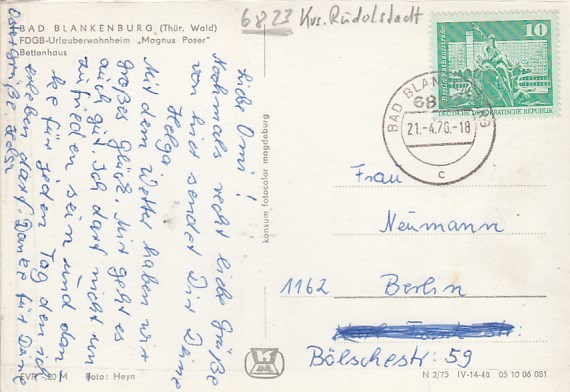 BAD BLANKENBURG (Thür. Wald)
FDGB-Urlauberwohnheim „Magnus Poser"
Bettenhaus
6823 Krs. Rudolstadt
Liebe Omi!
Nochmals recht liebe Grüße
von hier sendet Dir Deine
Helga.
Mit dem Wetter haben wir
großes Glück. Mir geht es
auch gut. Ich darf nicht un
zufrieden sein und dan
ke für jeden Tag den ich
erleben darf. Danke für Deine
Ostergrüße
konsum fotocolor magdeburg
10
DEUTSCHE DEMOKRATISCHE REPUBLIK
BAD BLANKENBURG
68
21.-4.76.-18
c
Frau
Neumann
1162 Berlin
Bölschestr. 59
EVP -,20 M Foto: Heyn
N 2/75 IV-14-48 05 10 06 081